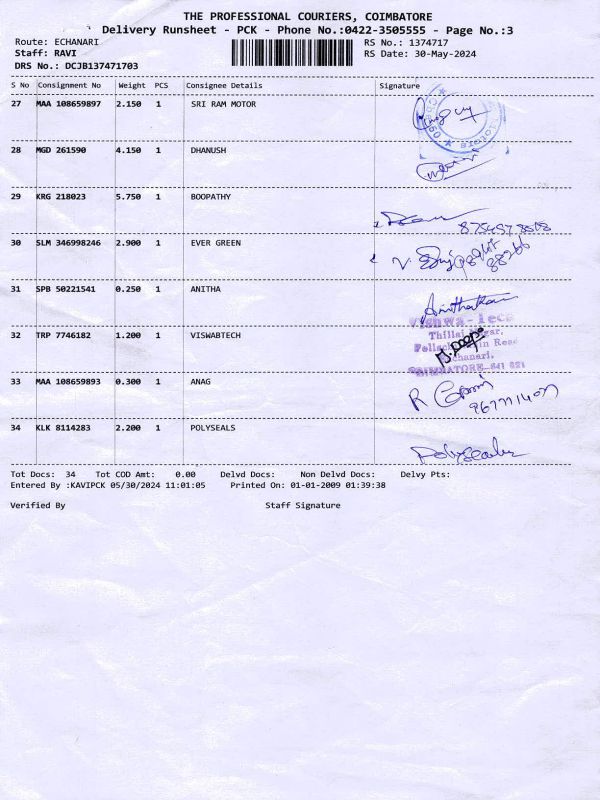 THE PROFESSIONAL COURIERS, COIMBATORE
Delivery Runsheet - PCK - Phone No.:0422-3505555 - Page No.:3
Route: ECHANARI RS No.: 1374717
Staff: RAVI RS Date: 30-May-2024
DRS No.: DCJB137471703
S No Consignment No Weight PCS Consignee Details Signature
27 MAA 108659897 2.150 1 SRI RAM MOTOR
28 MGD 261590 4.150 1 DHANUSH
29 KRG 218023 5.750 1 BOOPATHY
30 SLM 346998246 2.900 1 EVER GREEN
31 SPB 50221541 0.250 1 ANITHA
Vishwa-Tech
32 TRP 7746182 1.200 1 VISWABTECH
COIMBATORE-641 021
33 MAA 108659893 0.300 1 ANAG
34 KLK 8114283 2.200 1 POLYSEALS
Polyseals
Tot Docs: 34 Tot COD Amt: 0.00 Delvd Docs: Non Delvd Docs: Delvy Pts:
Entered By :KAVIPCK 05/30/2024 11:01:05 Printed On: 01-01-2009 01:39:38
Verified By Staff Signature